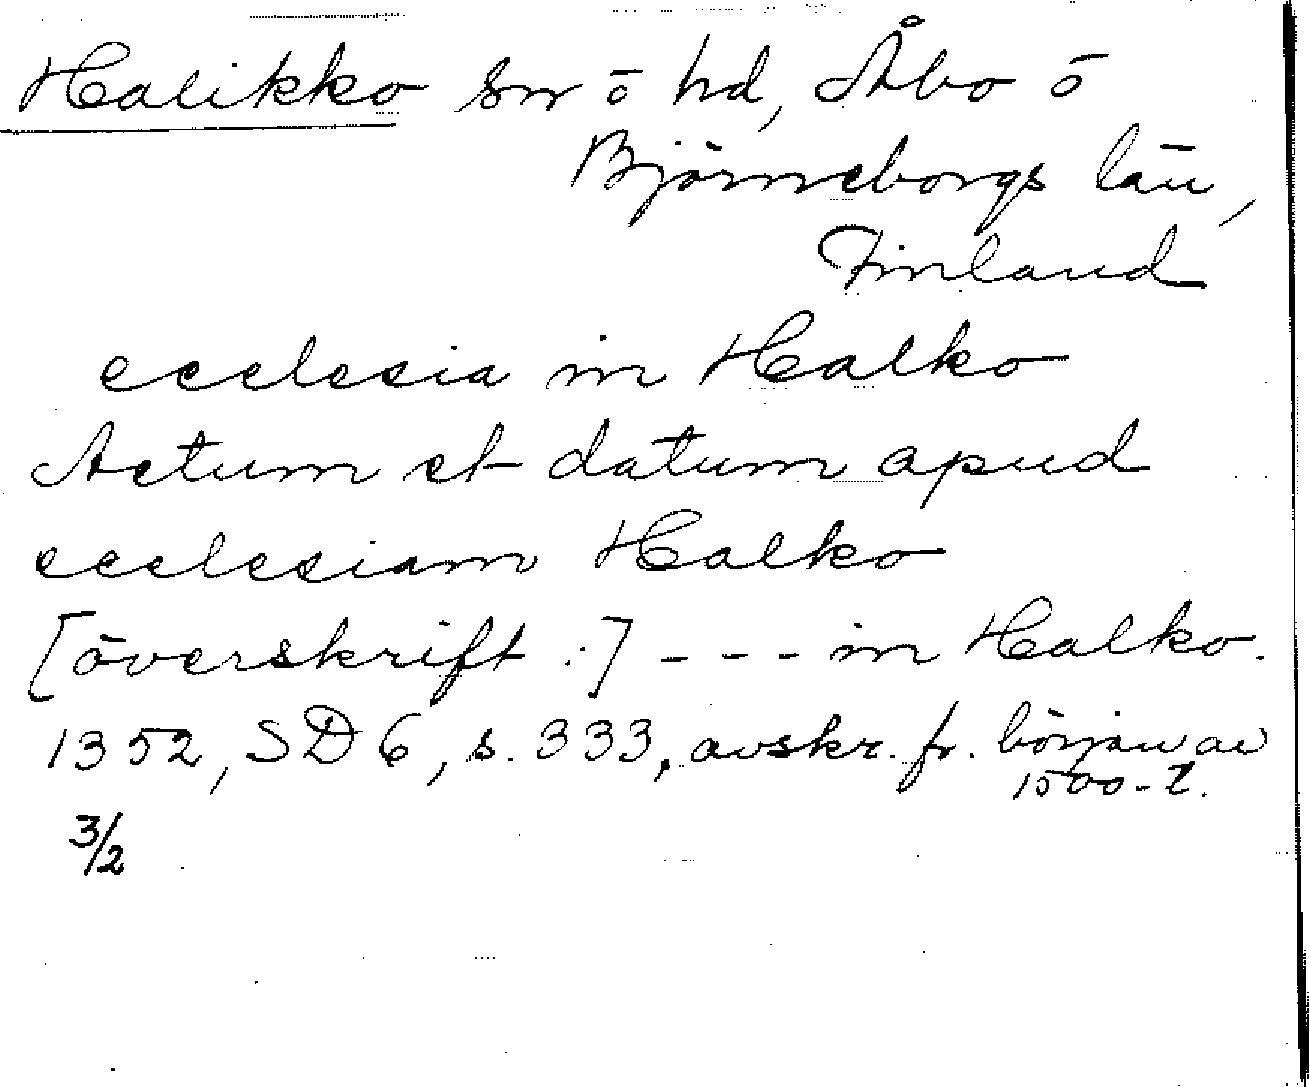 Halikko sn ō hd, Åbo ō
Björneborgs län,
Finland
ecclesia in Halko
Actum et datum apud
ecclesiam Halko
[överskrift:] - - - in Halko.
1352, SD 6, s. 333, avskr. fr. början av
1500-t.
3/2